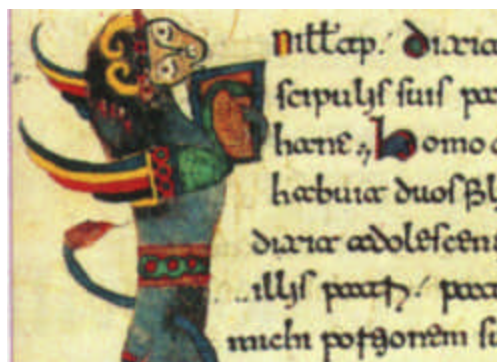 Dixit
scipulis suis pa
hanc homo
habuit duos
dixit adolescen
illis patri pat
michi portionem su